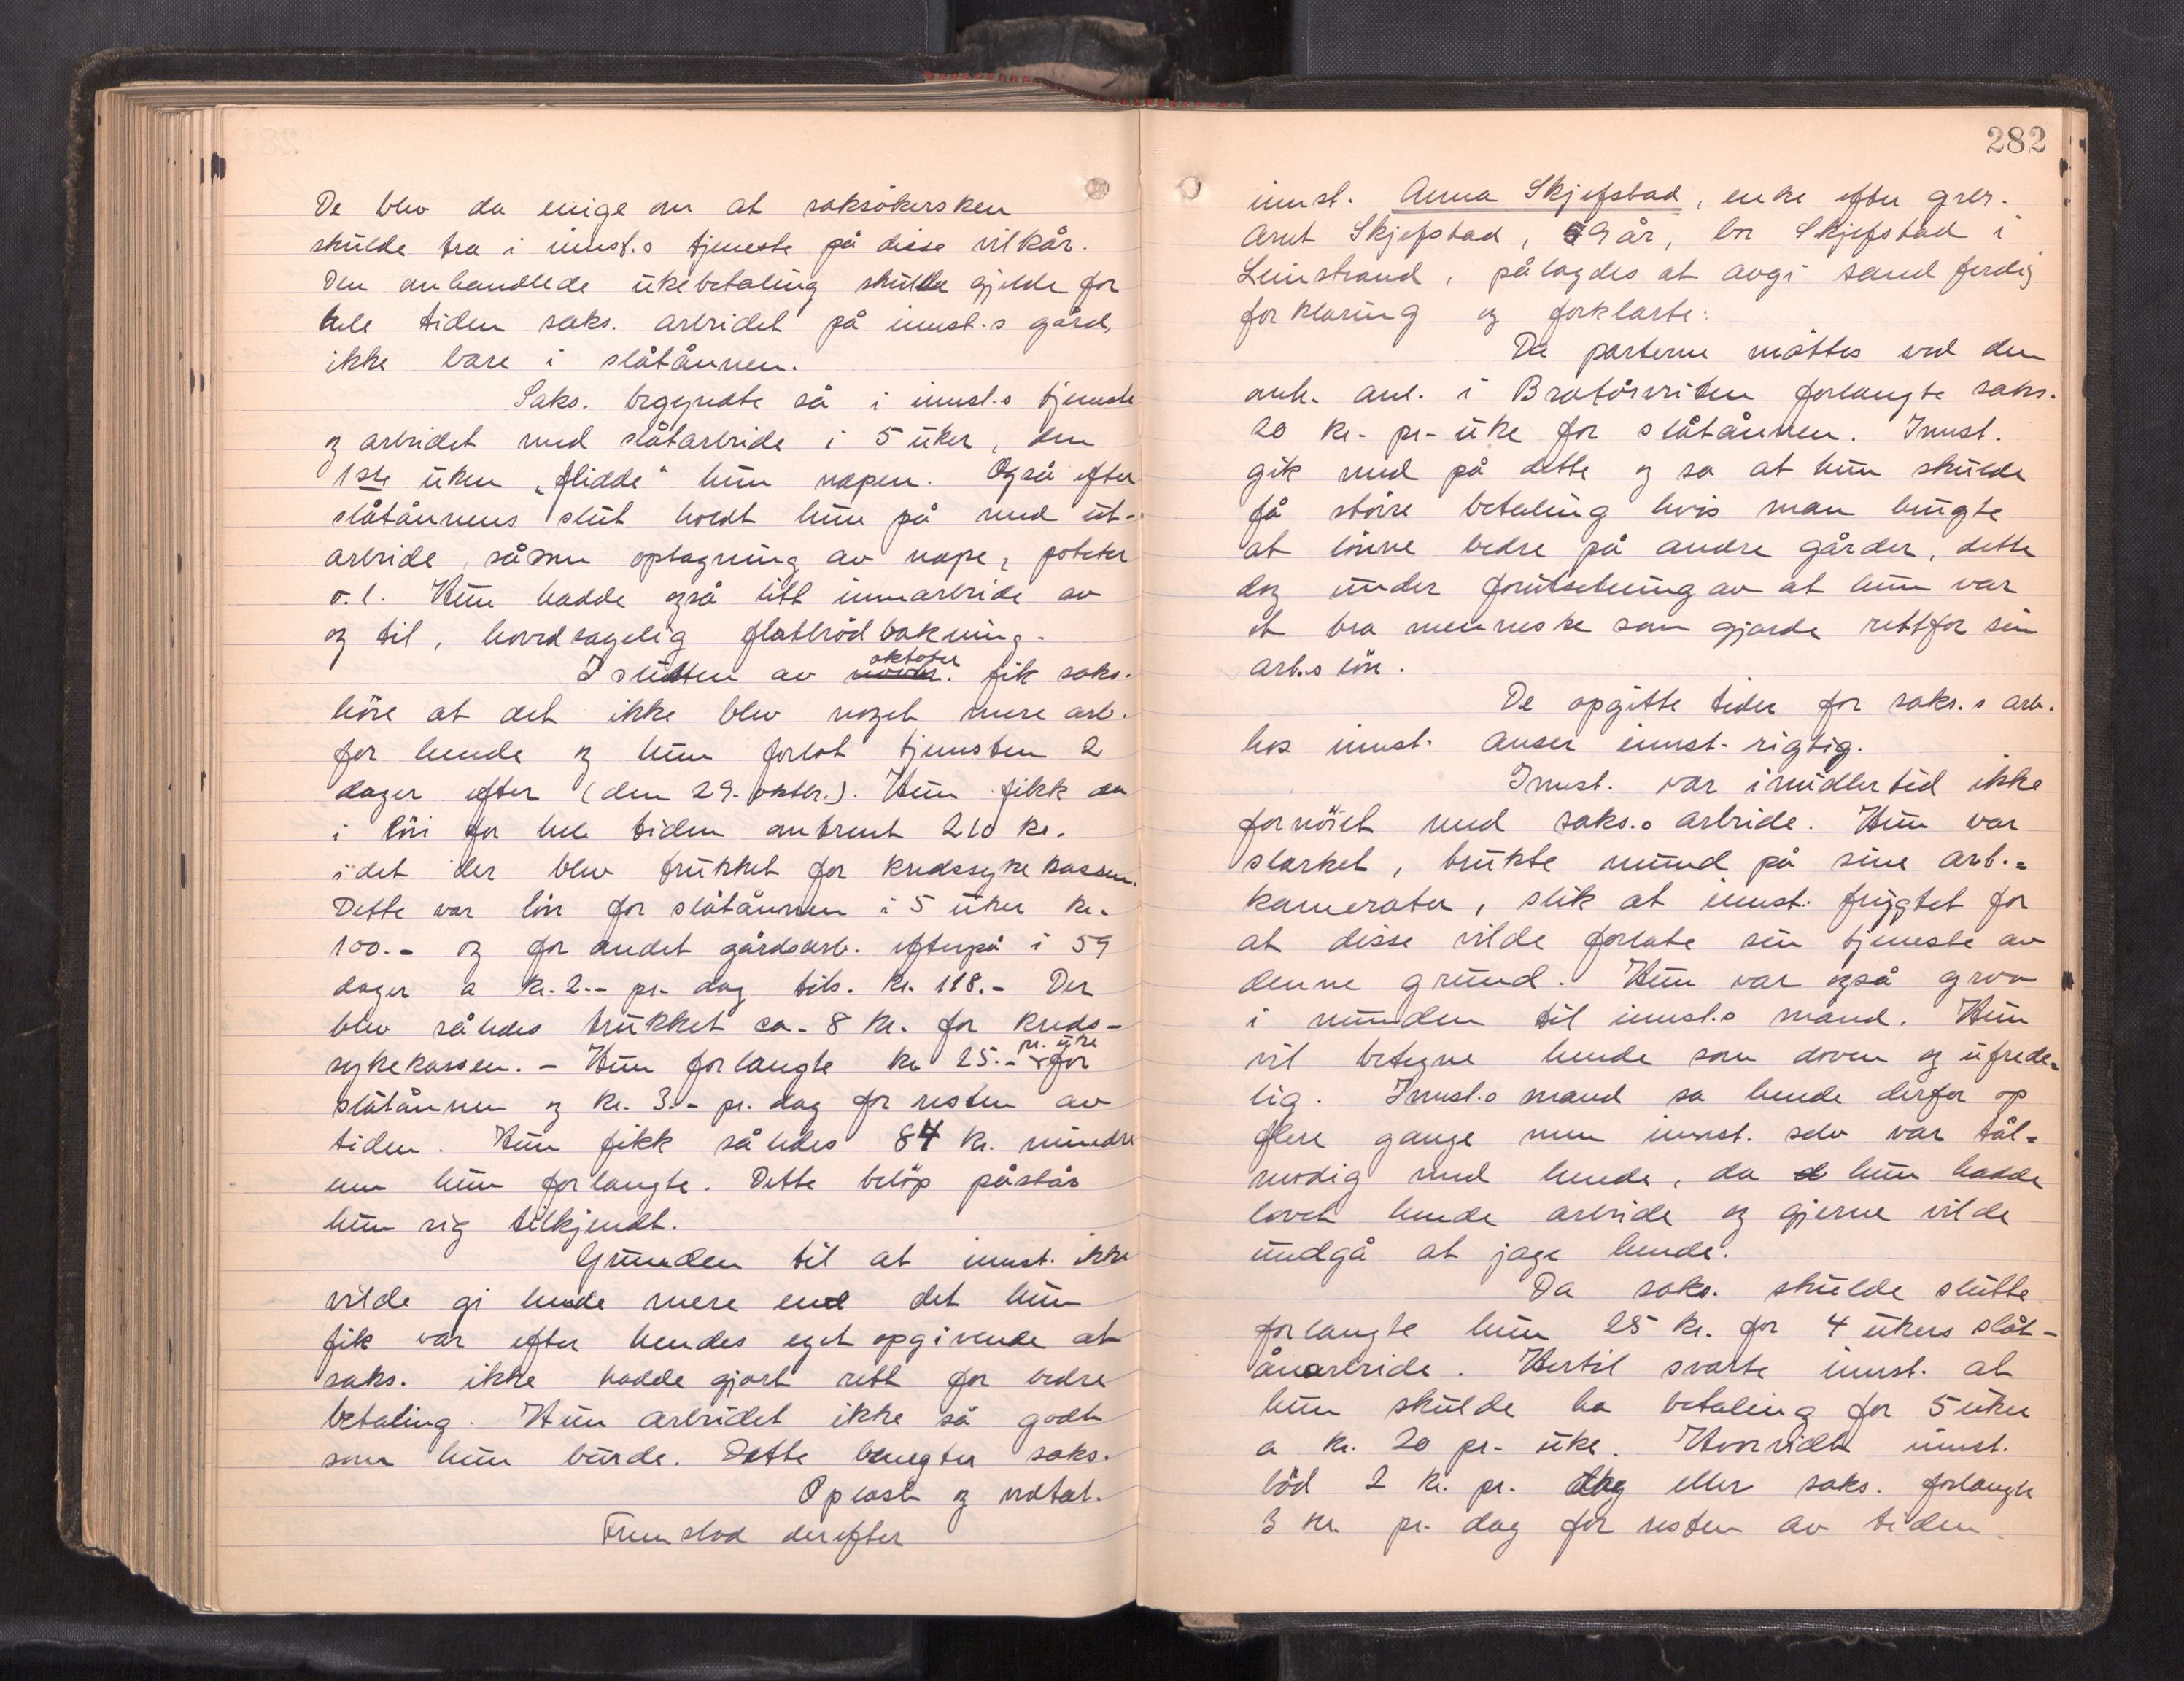 De blev da enige om at saksökersken
skulde tra i innst.s tjeneste på disse vilkår.
Den anhandlede ukebetaling skulde gjelde for
hele tiden saks. arbeidet på innst.s gård,
ikke bare i slåtånnen.
Saks. begyndte så i innst.s tjeneste
og arbeidet med slåtarbeide i 5 uker, den
1ste uken „flidde" hun næpen. Også efter
slåtånnens slut holdt hun på med ut-
arbeide, såsom optagning av næpe, poteter
o.l. Hun hadde også litt innarbeide av
og til, hovedsagelig flatbrödbakning.
I slutten av oktober fik saks.
höre at det ikke blev noget mere arb.
for hende og hun forlot tjenesten 2
dager efter (den 29. oktbr.). Hun fikk da
i lön for hele tiden omtrent 210 kr.
idet der blev trukket for kredssykekassen.
Dette var lön for slåtånnen i 5 uker kr.
100.- og for andet gårdsarb. efterpå i 59
dager a kr. 2.- pr. dag tils. kr. 118.- Der
blev således trukket ca. 8 kr. for kreds-
sykekassen. - Hun forlangte kr 25.- pr. uke for
slåtånnen og kr. 3.- pr. dag for resten av
tiden. Hun fikk således 84 kr. mindre
enn hun forlangte. Dette belöp påstår
hun sig tilkjendt.
Grunden til at innst. ikke
vilde gi hende mere end det hun
fik var efter hendes eget opgivende at
saks. ikke hadde gjort rett for bedre
betaling. Hun arbeidet ikke så godt
som hun burde. Dette benegter saks.
Oplæst og vedtat.
Frem stod derefter
282
innst. Anna Skjefstad, enke efter grbr.
Arnt Skjefstad, 69 år, bor Skjefstad i
Leinstrand, pålagdes at avgi sandferdig
forklaring og forklarte:
Da parterne möttes ved den
anh. anl. i Bratörveiten forlangte saks.
20 kr. pr. uke for slåtånnen. Innst.
gik med på dette og sa at hun skulde
få större betaling hvis man brugte
at lönne bedre på andre gårder, dette
dog under forutsetning av at hun var
et bra menneske som gjorde rett for sin
arb.s lön.
De opgitte tider for saks.s arb.
hos innst. anser innst. rigtig.
Innst. var imidlertid ikke
fornöiet med saks.s arbeide. Hun var
slarket, brukte mund på sine arb.-
kamerater, slik at innst. frygtet for
at disse vilde forlate sin tjeneste av
denne grund. Hun var også grov
i munden til innst.s mand. Hun
vil betegne hende som doven og ufrede-
lig. Innst.s mand sa hende derfor op
flere gange men innst. selv var tål-
modig med hende, da hun hadde
lovet hende arbeide og gjerne vilde
undgå at jage hende.
Da saks. skulde slutte
forlangte hun 25 kr. for 4 ukers slåt-
ånarbeide. Hertil svarte innst. at
hun skulde ha betaling for 5 uker
a kr. 20 pr. uke. Hvorvidt innst.
böd 2 kr. pr. dag eller saks. forlangte
3 kr. pr. dag for resten av tiden